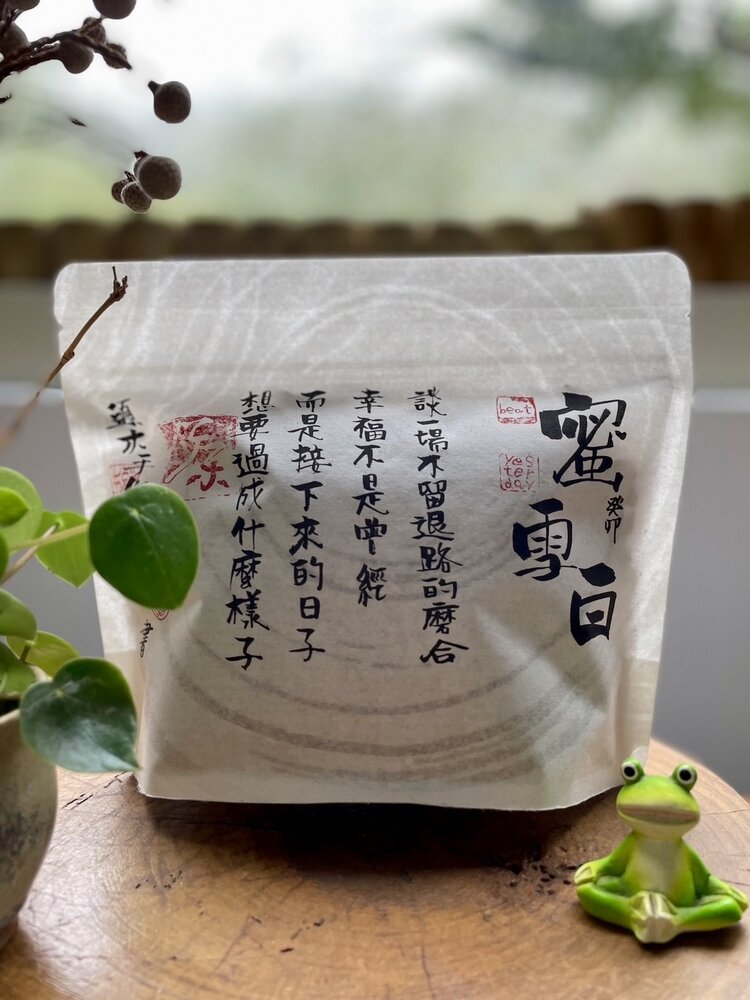 蜜雪日
癸卯
beat
yes
ter
day
談一場不留退路的磨合
幸福不是曾經
而是接下來的日子
想要過成什麼樣子
書